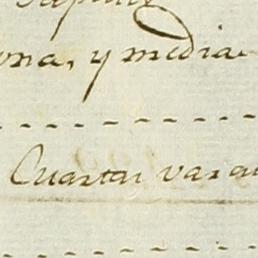 ona, y media
Quartas varas